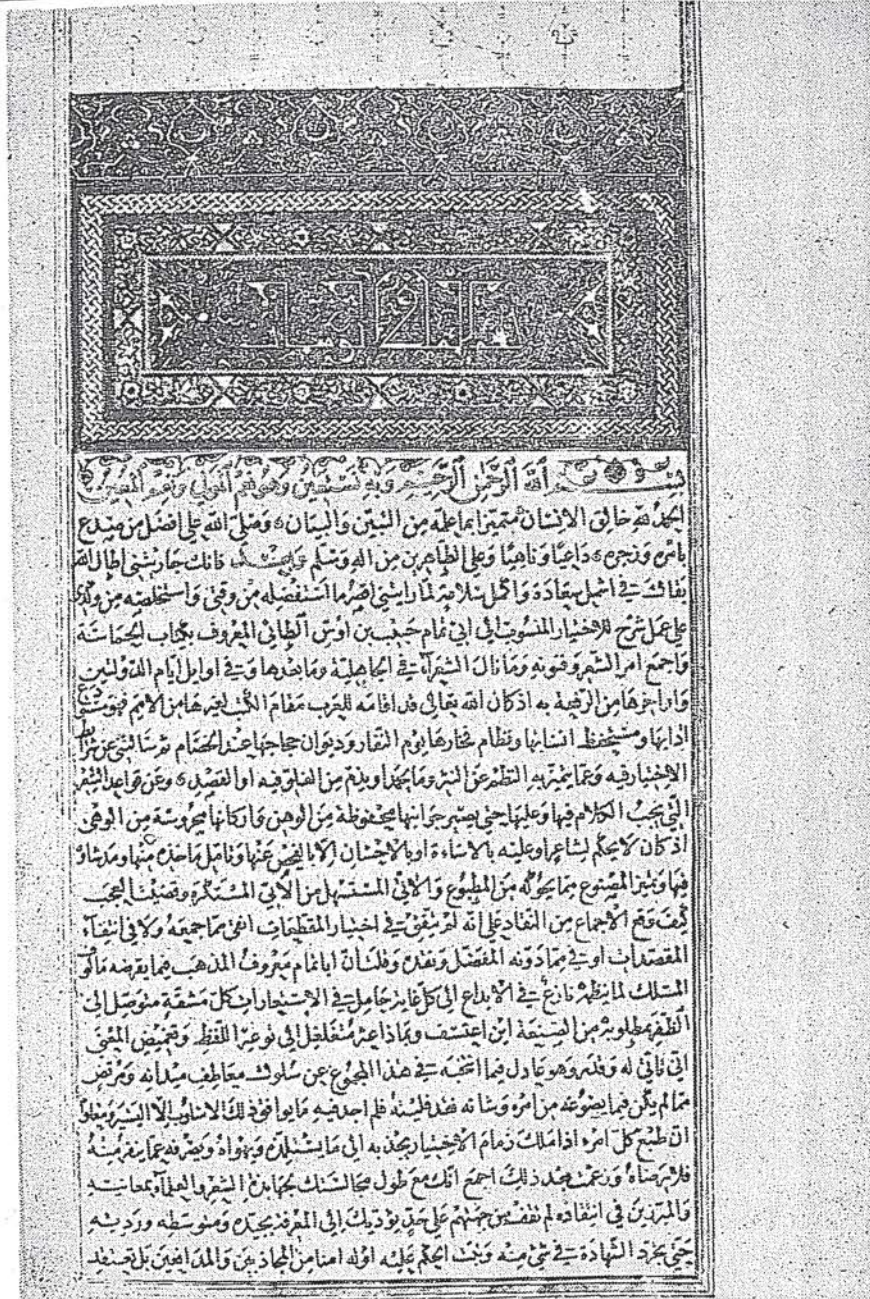 بسم الله الرحمن الرحيم وبه نستعين وهو نعم المولى ونعم المعين
الحمد لله خالق الانسان متميزا بما علمه من التبين والبيان وصلى الله على افضل من صدع
بامره وزجره داعيا وناهيا وعلى الطاهرين من اله وسلم وبعد فانك جاريتني اطال الله
بقاك في اشمل سعادة واكمل سلامة لما رايتني اقصر ما استفضله من وقتي واستخلصه من وكدي
على عمل شرح للاختيار المنسوب الى ابي تمام حبيب بن اوس الطائي المعروف بكتاب الحماسة
واجمع امر الشعر وفنونه وما نال الشعرآء في الجاهلية وما بعدها وفي اوايل ايام الدولتين
واواخرها من الرفعة به اذ كان الله تعالى قد اقامه للعرب مقام الكتب لغيرها من الامم فهو مستودع
ادابها ومستحفظ انسابها ونظام فخارها يوم النفار وديوان حجاجها عند الخصام ثم سالتني عن شرايط
الاختيار فيه وعما يتميز به النظم عن النثر وما يحمد او يذم من الغلو فيه او القصد وعن قواعد الشعر
التي يجب الكلام فيها وعليها حتى يصير جوانبها محفوظة من الوهن واركانها محروسة من الوهى
اذ كان لا يحكم لشاعر او عليه بالاساءة او بالاحسان الا بالفحص عنها وتامل ماخذه منها ومدى شاوه
فيها وتميز المصنوع مما يحوكه من المطبوع والاتي المستسهل من الابي المستنكره وقضيت العجب
كيف وقع الاجماع من النقاد على انه لم يتفق في اختيار المقطعات انقى مما جمعه ولا في انتقآء
المقصدات اوفى مما دونه المفضل ونقده وقلت ان ابا تمام معروف المذهب فيما يقرضه مالوف
المسلك لما ينظمه نازع في الابداع الى كل غاية حامل في الاستعارات كل مشقة متوصل الى
الظفر بمطلوبه من الصنعة اين اعتسف وبماذا عثر متغلغل الى توعير اللفظ وتغميض المعنى
انى تاتى له وقدر وهو عادل فيما انتخبه في هذا المجموع عن سلوك معاطف ميدانه ومرتض
مما لم يكن فيما يصوغه من امره وشانه فقد فليته فلم اجد فيه ما يوافق ذلك الاسلوب الا اليسير ومعلوم
ان طبع كل امرء اذا ملك زمام الاختيار يجذبه الى ما يستلذه ويهواه ويصرفه عما ينفر منه
فلا يرضاه وزعمت بعد ذلك اجمع انك مع طول مجالستك لجهابذة الشعر والعلمآء بمعانيه
والمبرزين في انتقاده لم تقف من جهتهم على حد يؤديك الى المعرفة بجيده ومتوسطه ورديئه
حتى تجرد الشهادة في شئ منه وتبت الحكم عليه اوله امنا من المجاذبين والمدافعين بل تعتقد